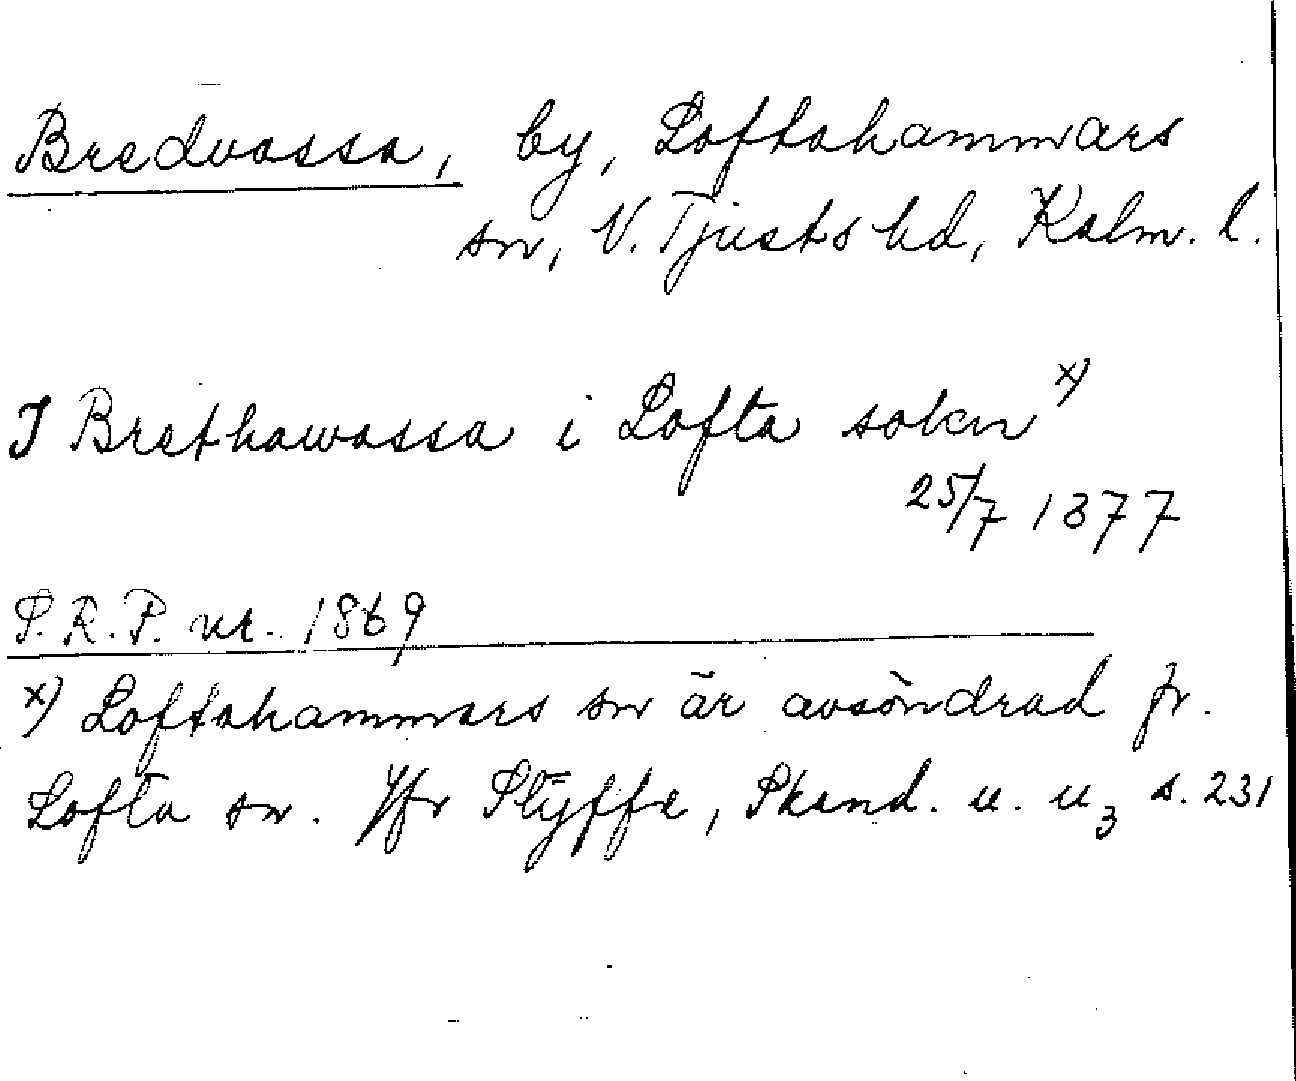 Bredvassa, by, Loftahammars
sn, N. Tjusts hd, Kalm. l.
I Brethawassa i Lofta sokn x)
25/7 1377
S.R.P. nr. 1869
x) Loftahammars sn är avsöndrad fr.
Lofta sn. Jfr Styffe, Skand. u. u3 s. 231